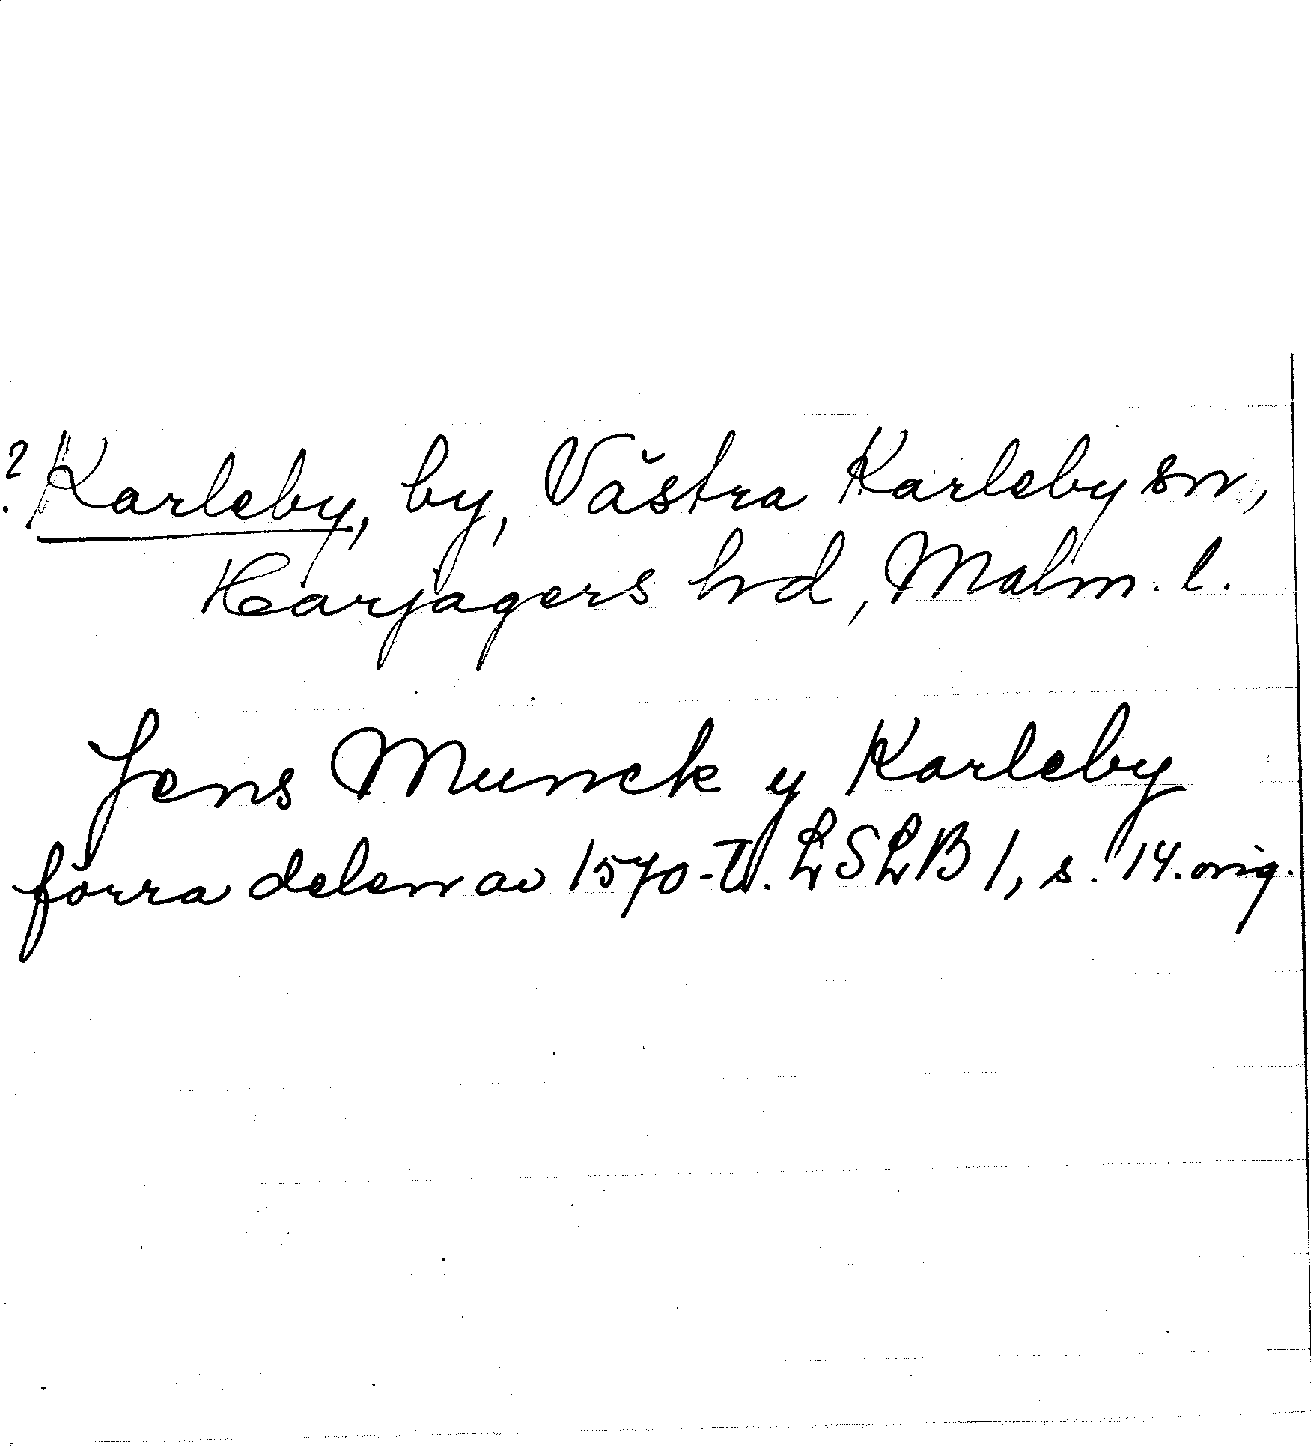 ? Karleby, by, Västra Karleby sn,
Harjagers hd, Malm. l.
Jens Munck y Karleby
förra delen av 1570-T. LSLB 1, s. 14. orig.